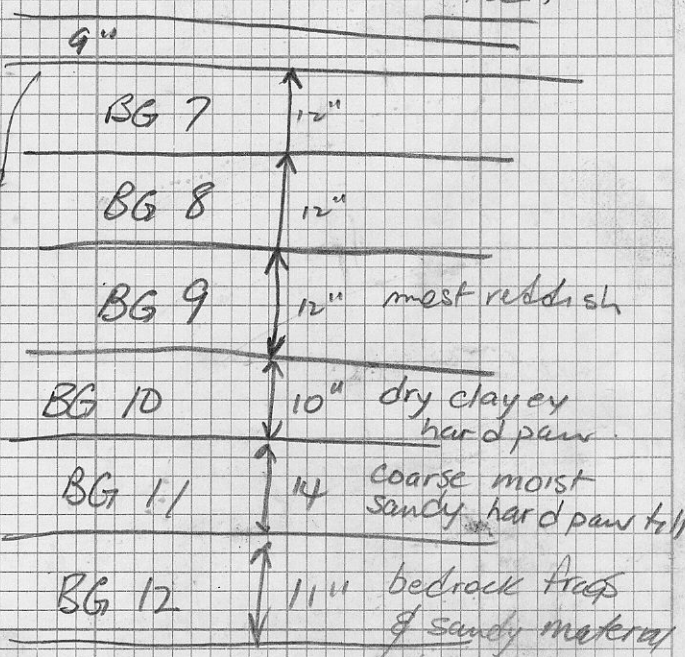 9"
BG 7 12"
BG 8 12"
BG 9 12" most reddish
BG 10 10" dry clayey
hardpan.
BG 11 14 coarse moist
sandy hardpan till
BG 12 11" bedrock frags
& sandy material